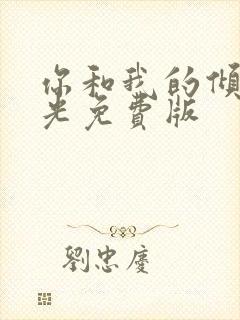 你和我的傾
光免費版
劉忠慶